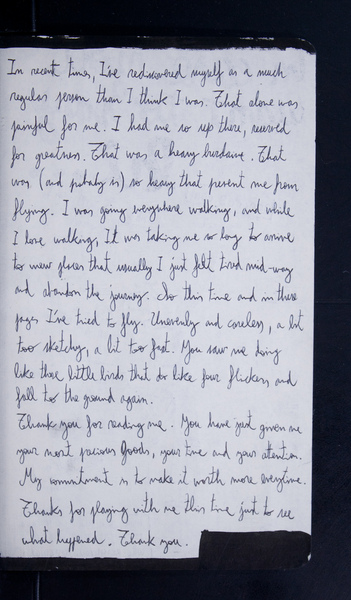 In recent times, I've rediscovered myself as a much
regular person than I think I was. That alone was
painful for me. I had me so up there, reserved
for greatness. That was a heavy burdame. That
was (and probably is) so heavy that prevent me from
flying. I was going everywhere walking, and while
I love walking, It was taking me so long to arrive
to new places that usually I just felt tired mid-way
and abandon the journey. So this time and in these
pages I've tried to fly. Unevenly and careless, a bit
too sketchy, a bit too fast. You saw me doing
like those little birds that do like four flickers and
fall to the ground again.
Thank you for reading me. You have just given me
your most precious goods, your time and your attention.
My commitment is to make it worth more everytime.
Thanks for playing with me this time just to see
what happened. Thank you.